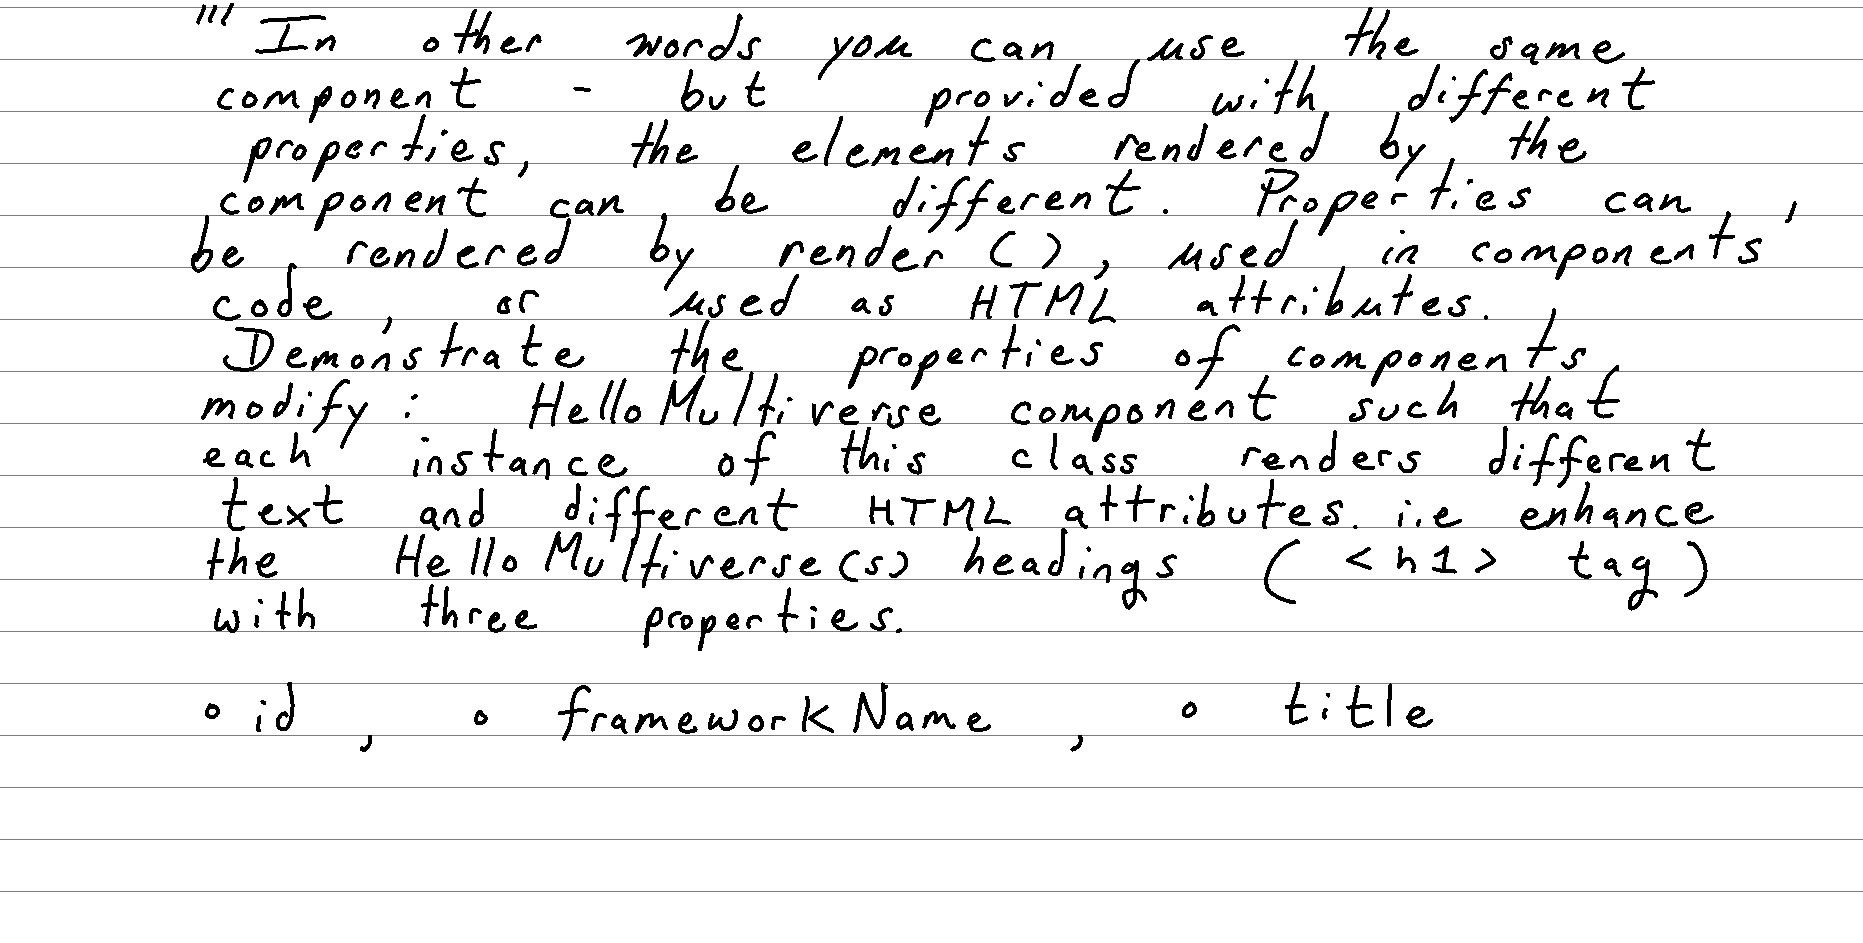 "' In other words you can use the same
component - but provided with different
properties, the elements rendered by the
component can be different. Properties can
be rendered by render (), used in components'
code, or used as HTML attributes.
Demonstrate the properties of components,
modify: HelloMultiverse component such that
each instance of this class renders different
text and different HTML attributes. i.e enhance
the HelloMultiverse(s) headings ( <h1> tag )
with three properties.
• id , • frameworkName , • title